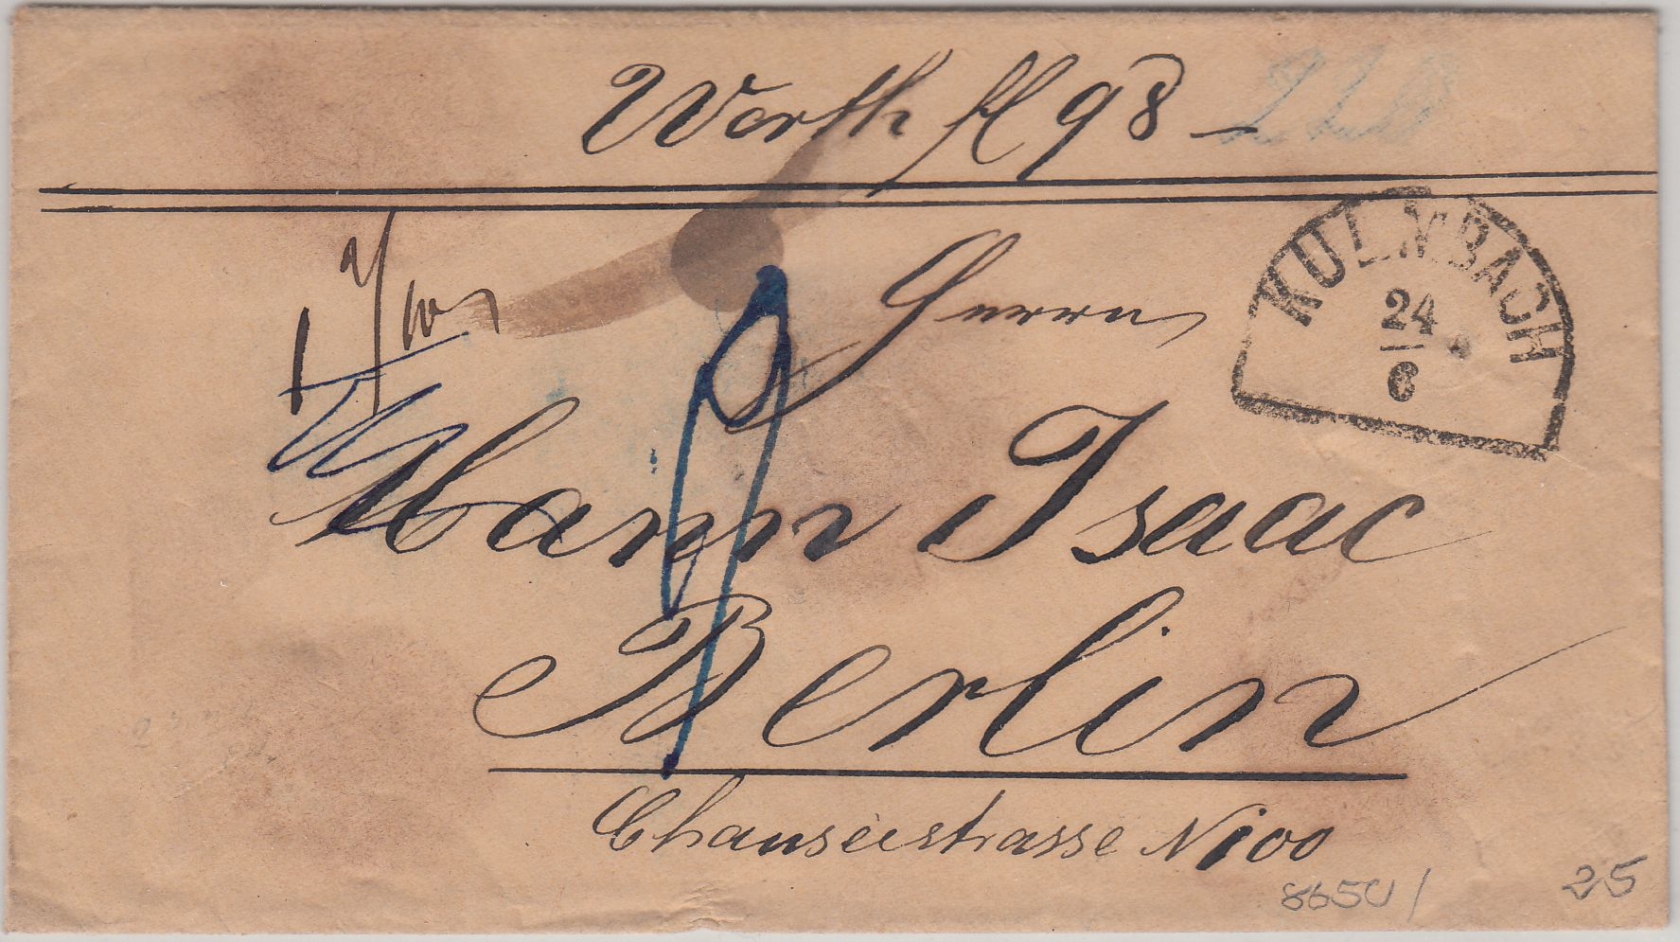 Werth fl 98 —
KULMBACH
24
6
Herrn
Mann Isaac
Berlin
Chauseestrasse N 100
8650 /
25